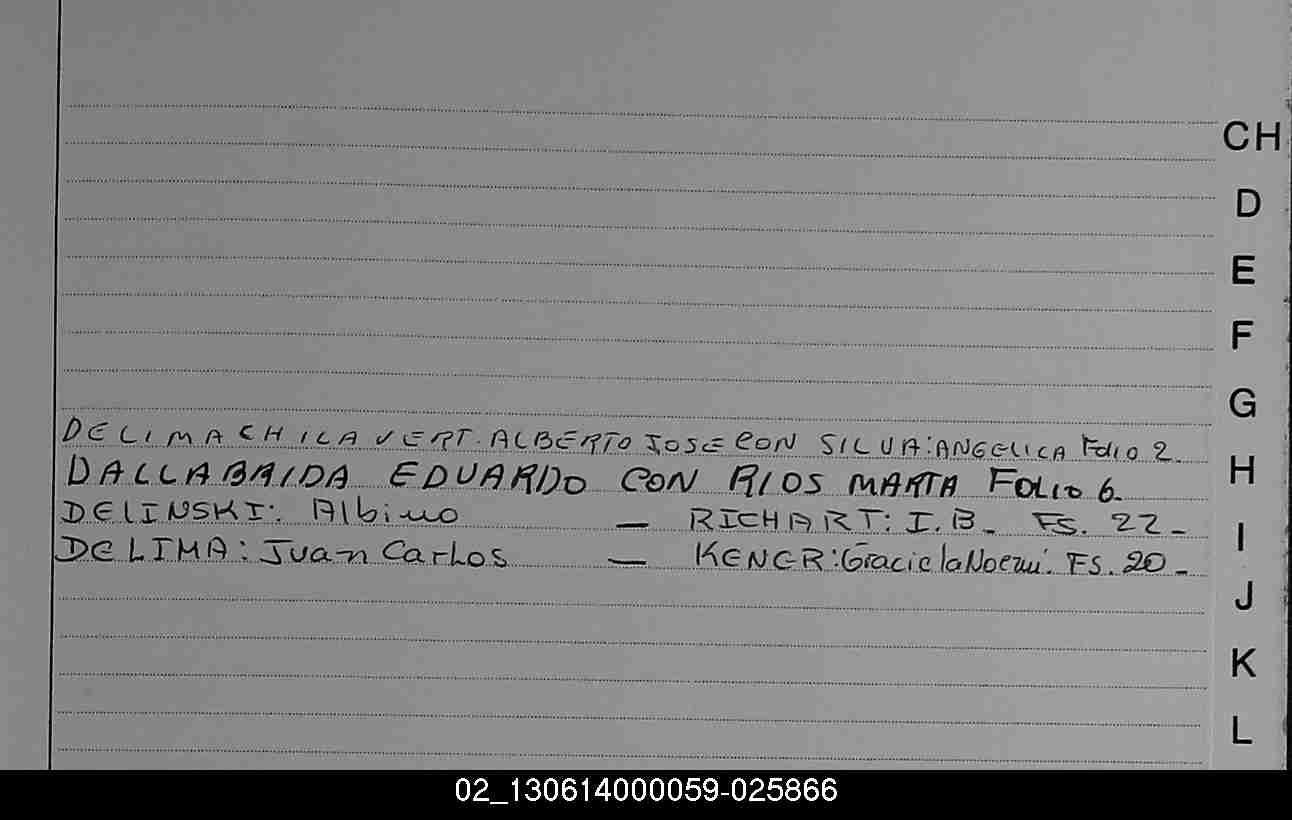 CH
D
E
F
G
DELIMA CHILAVERT. ALBERTO JOSE CON SILVA: ANGELICA Folio 2.
H
DALLABRIDA EDUARDO CON RIOS MARTA FOLIO 6.
DELINSKI: Albino — RICHART: I.B. FS. 22-
I
DE LIMA: Juan Carlos — KENER: Graciela Noemi. FS. 20-
J
K
L
02_130614000059-025866